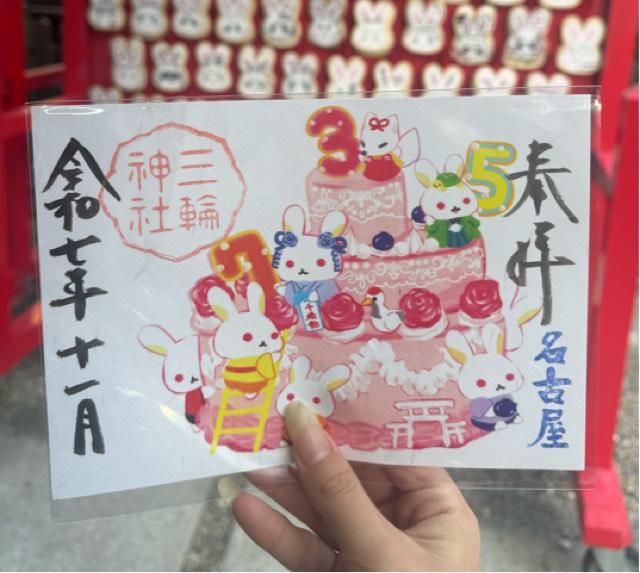 奉拝
名古屋
3
5
7
千歳飴
三輪
神社
令和七年十一月